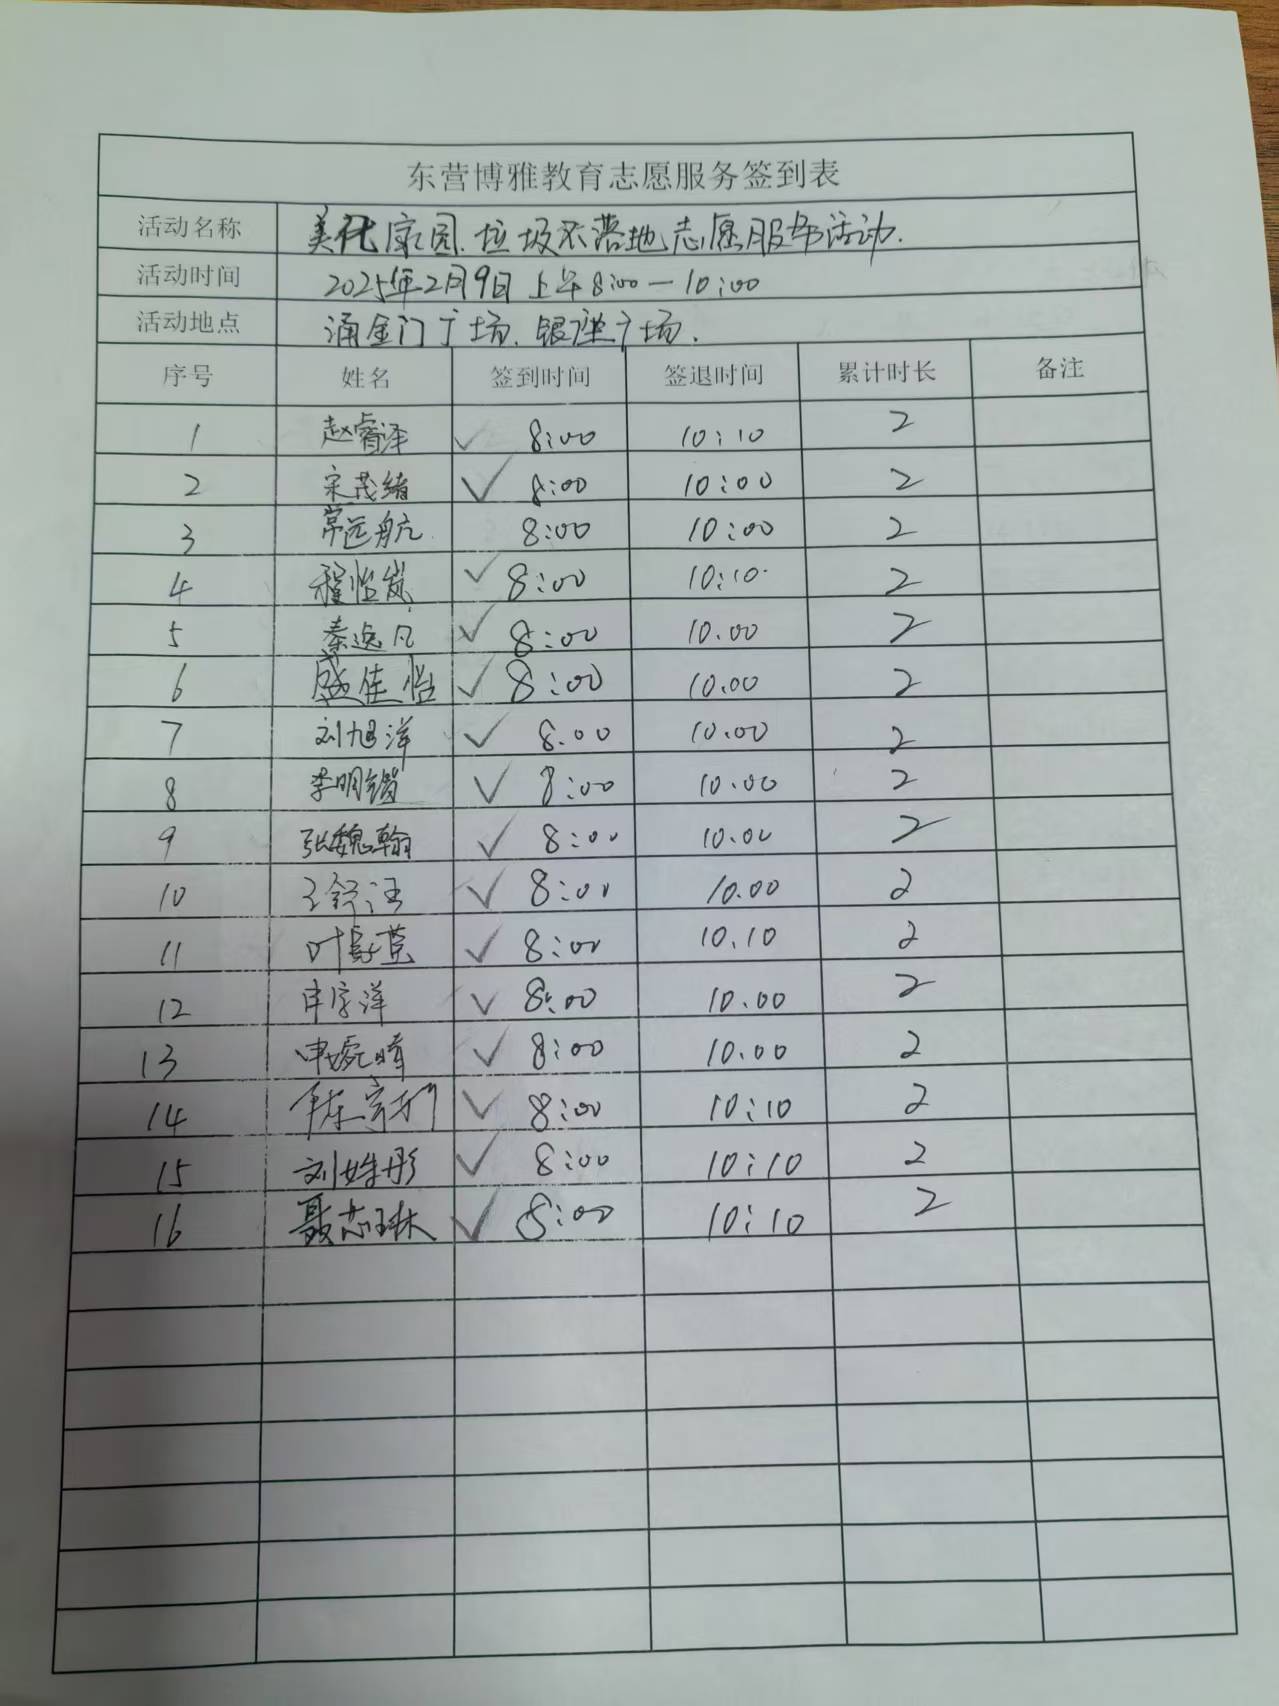 东营博雅教育志愿服务签到表
活动名称 美化家园.垃圾不落地志愿服务活动.
活动时间 2025年2月9日上午8:00—10:00
活动地点 涌金门广场.银座广场.
序号 姓名 签到时间 签退时间 累计时长 备注
1 赵睿泽 ✓ 8:00 10:10 2
2 宋茂绪 ✓ 8:00 10:00 2
3 常远航 8:00 10:00 2
4 程怡岚 ✓ 8:00 10:10 2
5 秦逸凡 ✓ 8:00 10.00 2
6 盛佳怡 ✓ 8:00 10.00 2
7 刘旭洋 ✓ 8.00 10.00 2
8 李明锴 ✓ 8:00 10.00 2
9 张魏翰 ✓ 8:00 10.00 2
10 王舒 ✓ 8:00 10.00 2
11 叶 ✓ 8:00 10.10 2
12 宇洋 ✓ 8:00 10.00 2
13 申婉晴 ✓ 8:00 10.00 2
14 ✓ 8:00 10:10 2
15 刘姝彤 ✓ 8:00 10:10 2
16 聂芯琳 ✓ 8:00 10:10 2